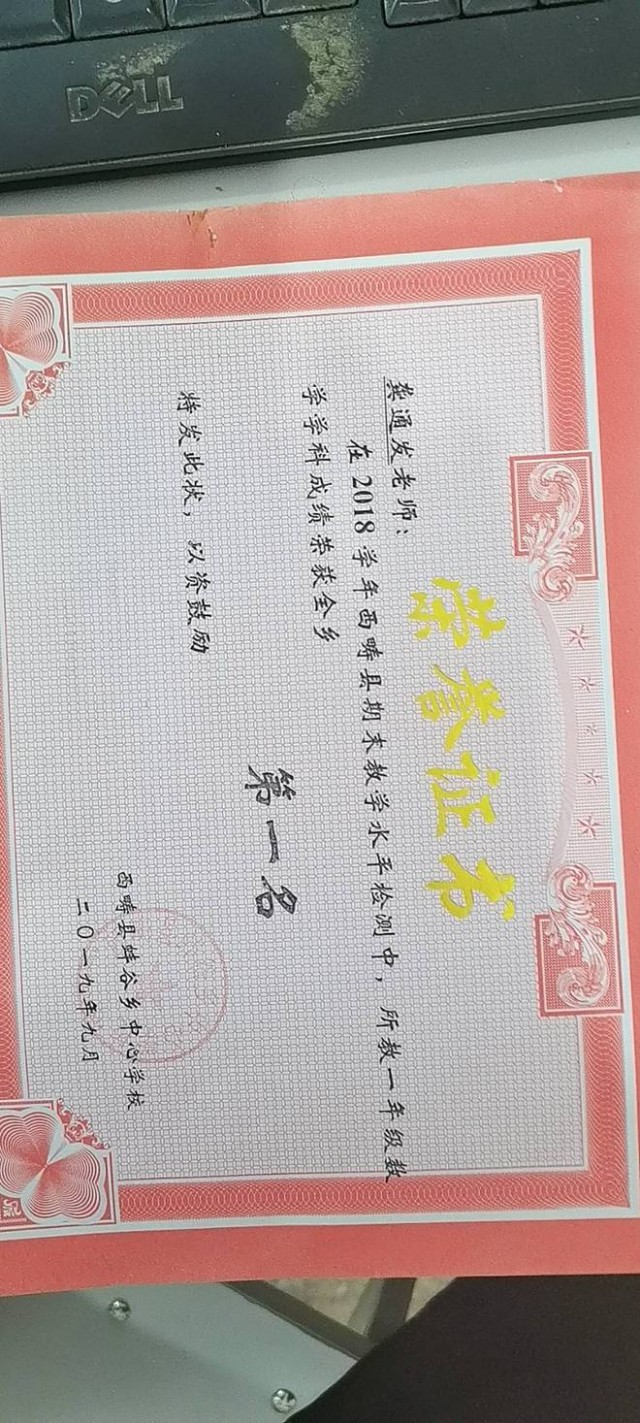 DELL
荣誉证书
龚通发老师：
在2018学年西畴县期末教学水平检测中，所教一年级数
学学科成绩荣获全乡
第一名
特发此状，以资鼓励
西畴县蚌谷乡中心学校
二〇一九年九月